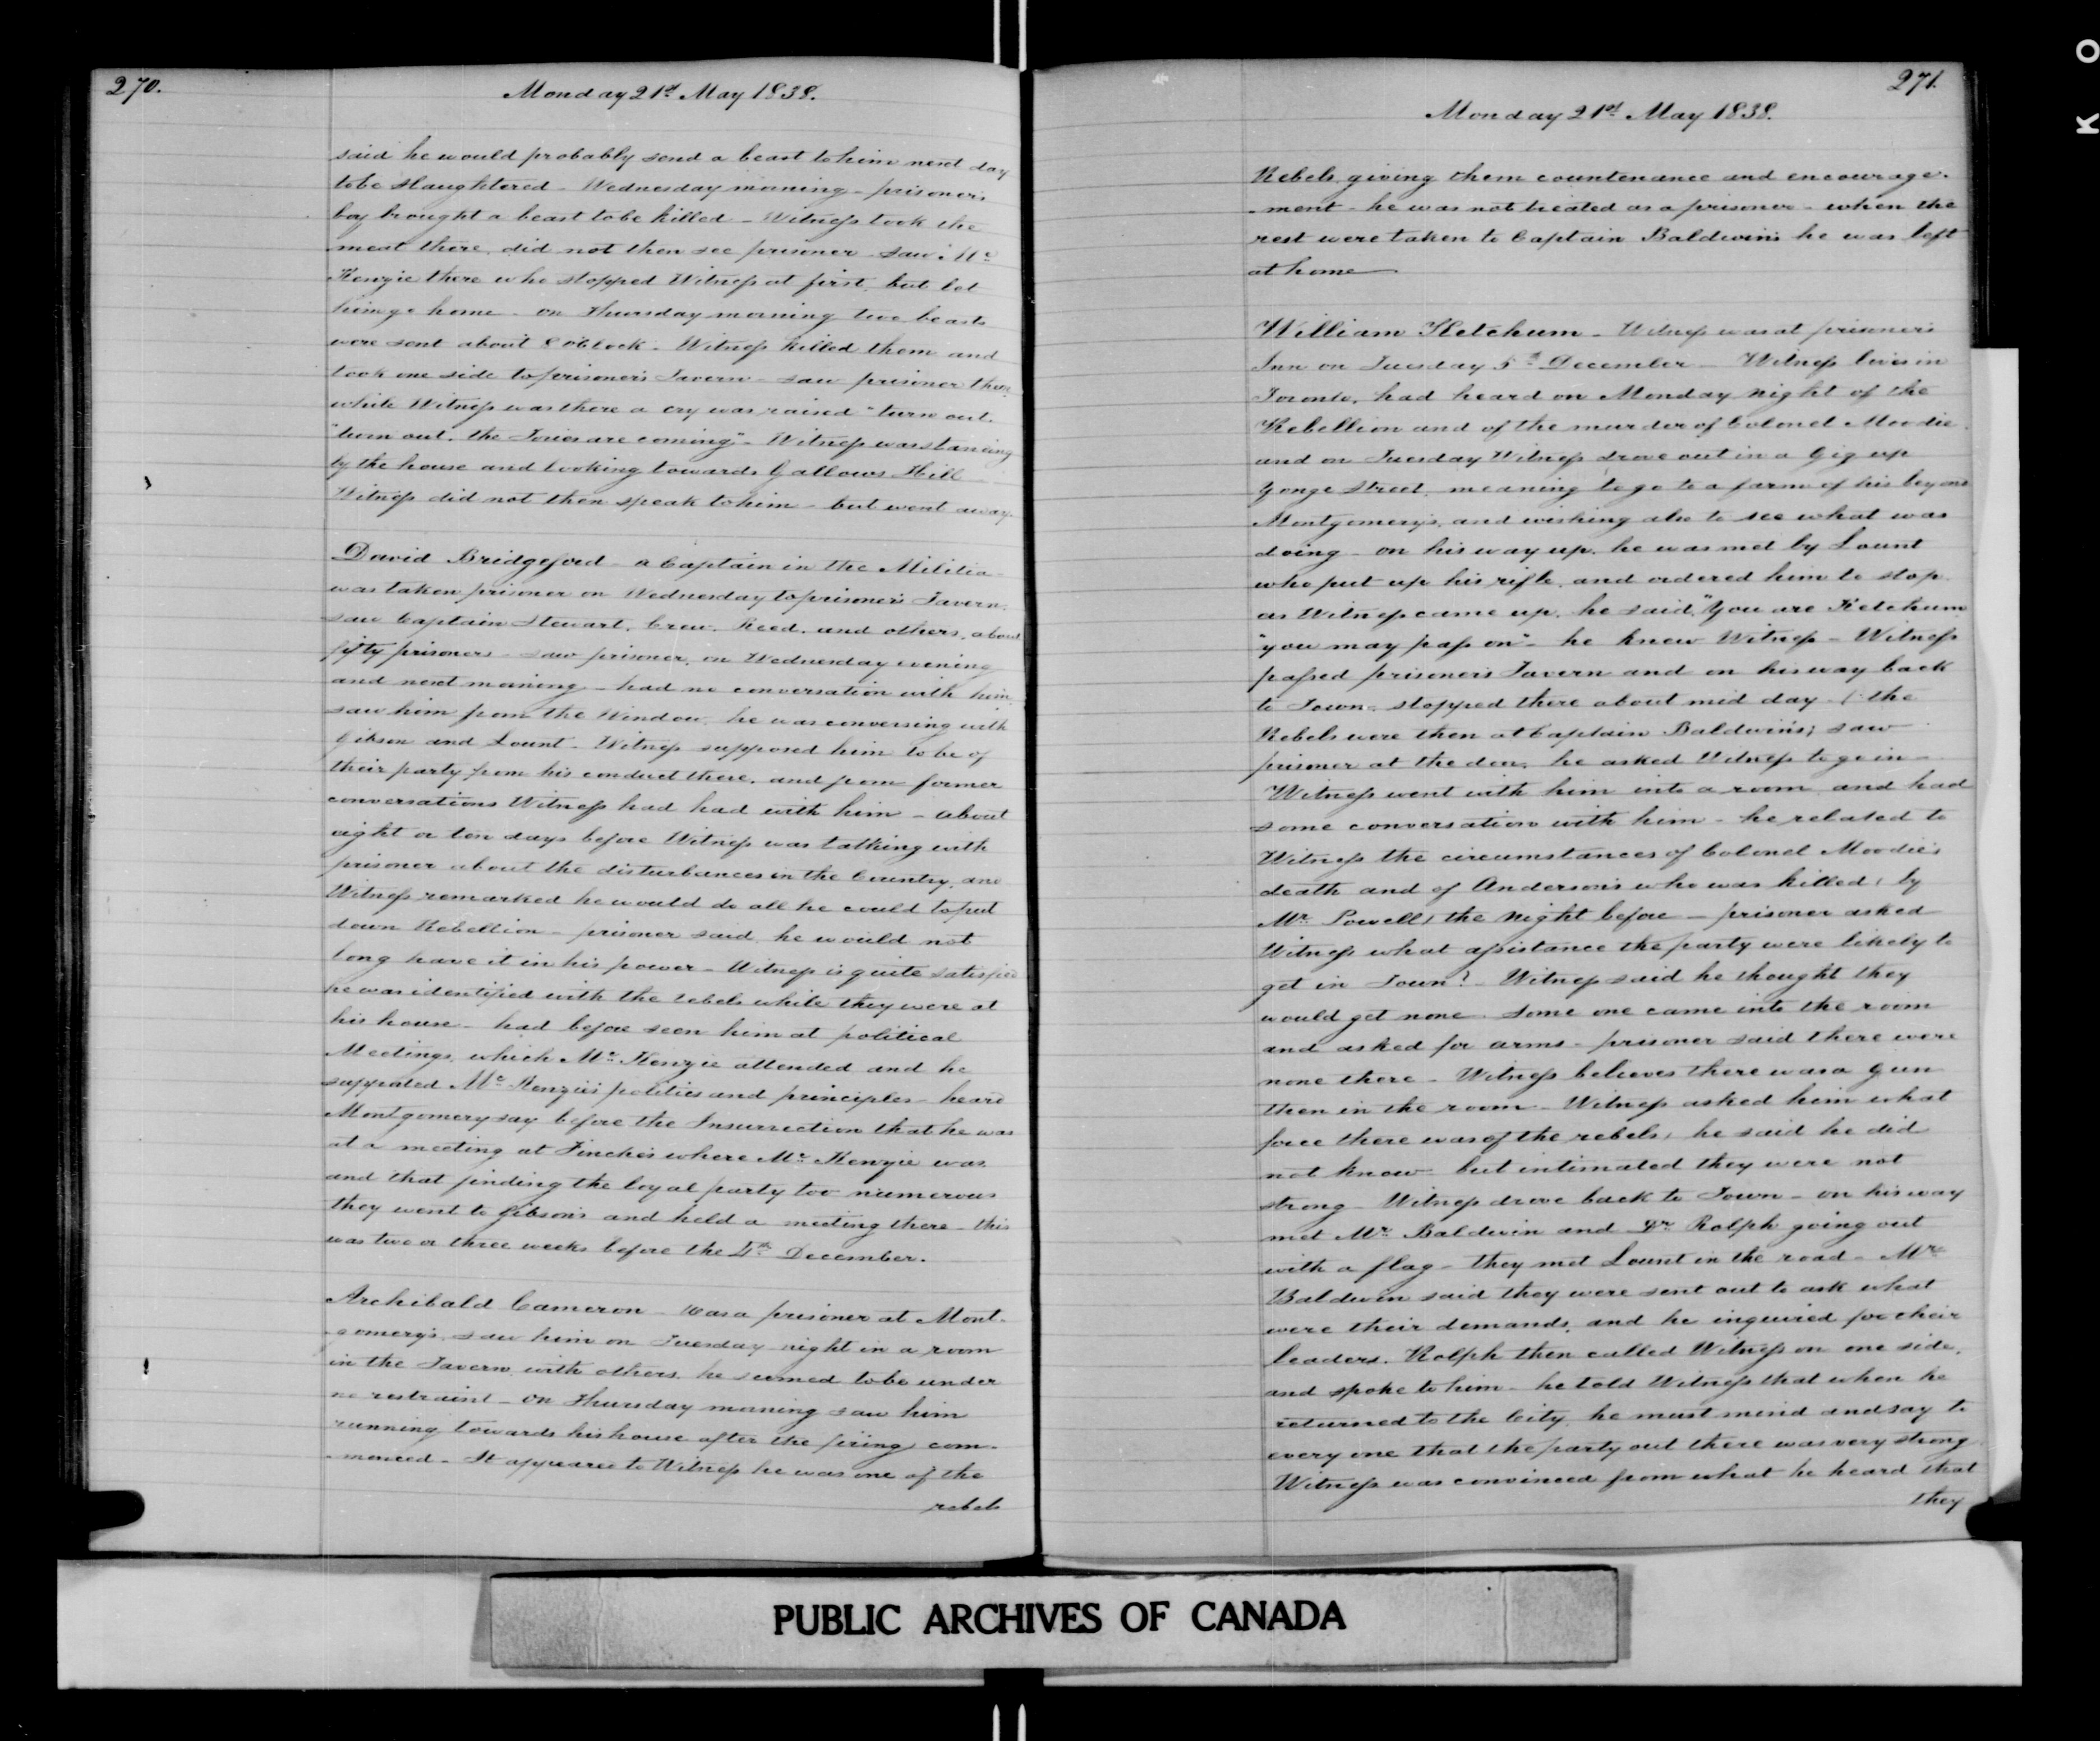 270.
Monday 21st May 1838.
said he would probably send a beast to him next day
to be slaughtered - Wednesday morning - prisoner's
boy brought a beast to be killed - Witness took the
meat there, did not then see prisoner - saw Mc
Kenzie there who stopped Witness at first, but let
him go home - on Thursday morning two beasts
were sent about 8 o'Clock - Witness killed them and
took one side to prisoner's Tavern - saw prisoner then,
while Witness was there a cry was raised "turn out.
"turn out, the Tories are coming" - Witness was standing
by the house and looking towards Gallows Hill
Witness did not then speak to him - but went away.
David Bridgeford - a Captain in the Militia -
was taken prisoner on Wednesday to prisoner's Tavern.
saw Captain Stewart, Crew, Reed, and others, about
fifty prisoners - saw prisoner, on Wednesday evening
and next morning - had no conversation with him,
saw him from the Window, he was conversing with
Gibson and Lount - Witness supposed him to be of
their party from his conduct there, and from former
conversations Witness had had with him - about
eight or ten days before Witness was talking with
prisoner about the disturbances in the Country, and
Witness remarked he would do all he could to put
down Rebellion - prisoner said he would not
long have it in his power - Witness is quite satisfied
he was identified with the rebels while they were at
his house - had before seen him at political
Meetings, which Mc Kenzie attended and he
supported Mc Kenzie's politics and principles - heard
Montgomery say before the Insurrection that he was
at a meeting at Finche's where Mc Kenzie was,
and that finding the loyal party too numerous
they went to Gibson's and held a meeting there - this
was two or three weeks before the 4th December.
Archibald Cameron - was a prisoner at Mont-
-gomery's, saw him on Tuesday night in a room
in the Tavern with others, he seemed to be under
no restraint - on Thursday morning saw him
running towards his house after the firing com-
-menced - It appeared to Witness he was one of the
rebels
271.
Monday 21st May 1838.
Rebels, giving them countenance and encourage-
-ment - he was not treated as a prisoner - when the
rest were taken to Captain Baldwin's he was left
at home
William Ketchum - Witness was at prisoner's
Inn on Tuesday 5th December - Witness lives in
Toronto, had heard on Monday night of the
Rebellion and of the murder of Colonel Moodie
and on Tuesday Witness drove out in a Gig up
Yonge Street, meaning to go to a farm of his beyond
Montgomery's, and wishing also to see what was
doing - on his way up, he was met by Lount
who put up his rifle, and ordered him to stop
as Witness came up, he said, "You are Ketchum
"you may pass on" - he knew Witness - Witness
passed prisoner's Tavern and on his way back
to Town, stopped there about mid day (the
Rebels were then at Captain Baldwin's; saw
prisoner at the door, he asked Witness to go in -
Witness went with him into a room and had
some conversation with him - he related to
Witness the circumstances of Colonel Moodie's
death and of Anderson's who was killed, by
Mr Powell, the night before - prisoner asked
Witness what assistance the party were likely to
get in Town? - Witness said he thought they
would get none - some one came into the room
and asked for arms - prisoner said there were
none there - Witness believes there was a gun
then in the room - Witness asked him what
force there was of the rebels, he said he did
not know but intimated they were not
strong - Witness drove back to Town - on his way
met Mr Baldwin and Dr Rolph going out
with a flag - they met Lount in the road - Mr
Baldwin said they were sent out to ask what
were their demands, and he inquired for their
leaders. Rolph then called Witness on one side,
and spoke to him - he told Witness that when he
returned to the City, he must mind and say to
every one that the party out there was very strong
Witness was convinced from what he heard that
they
PUBLIC ARCHIVES OF CANADA
K O